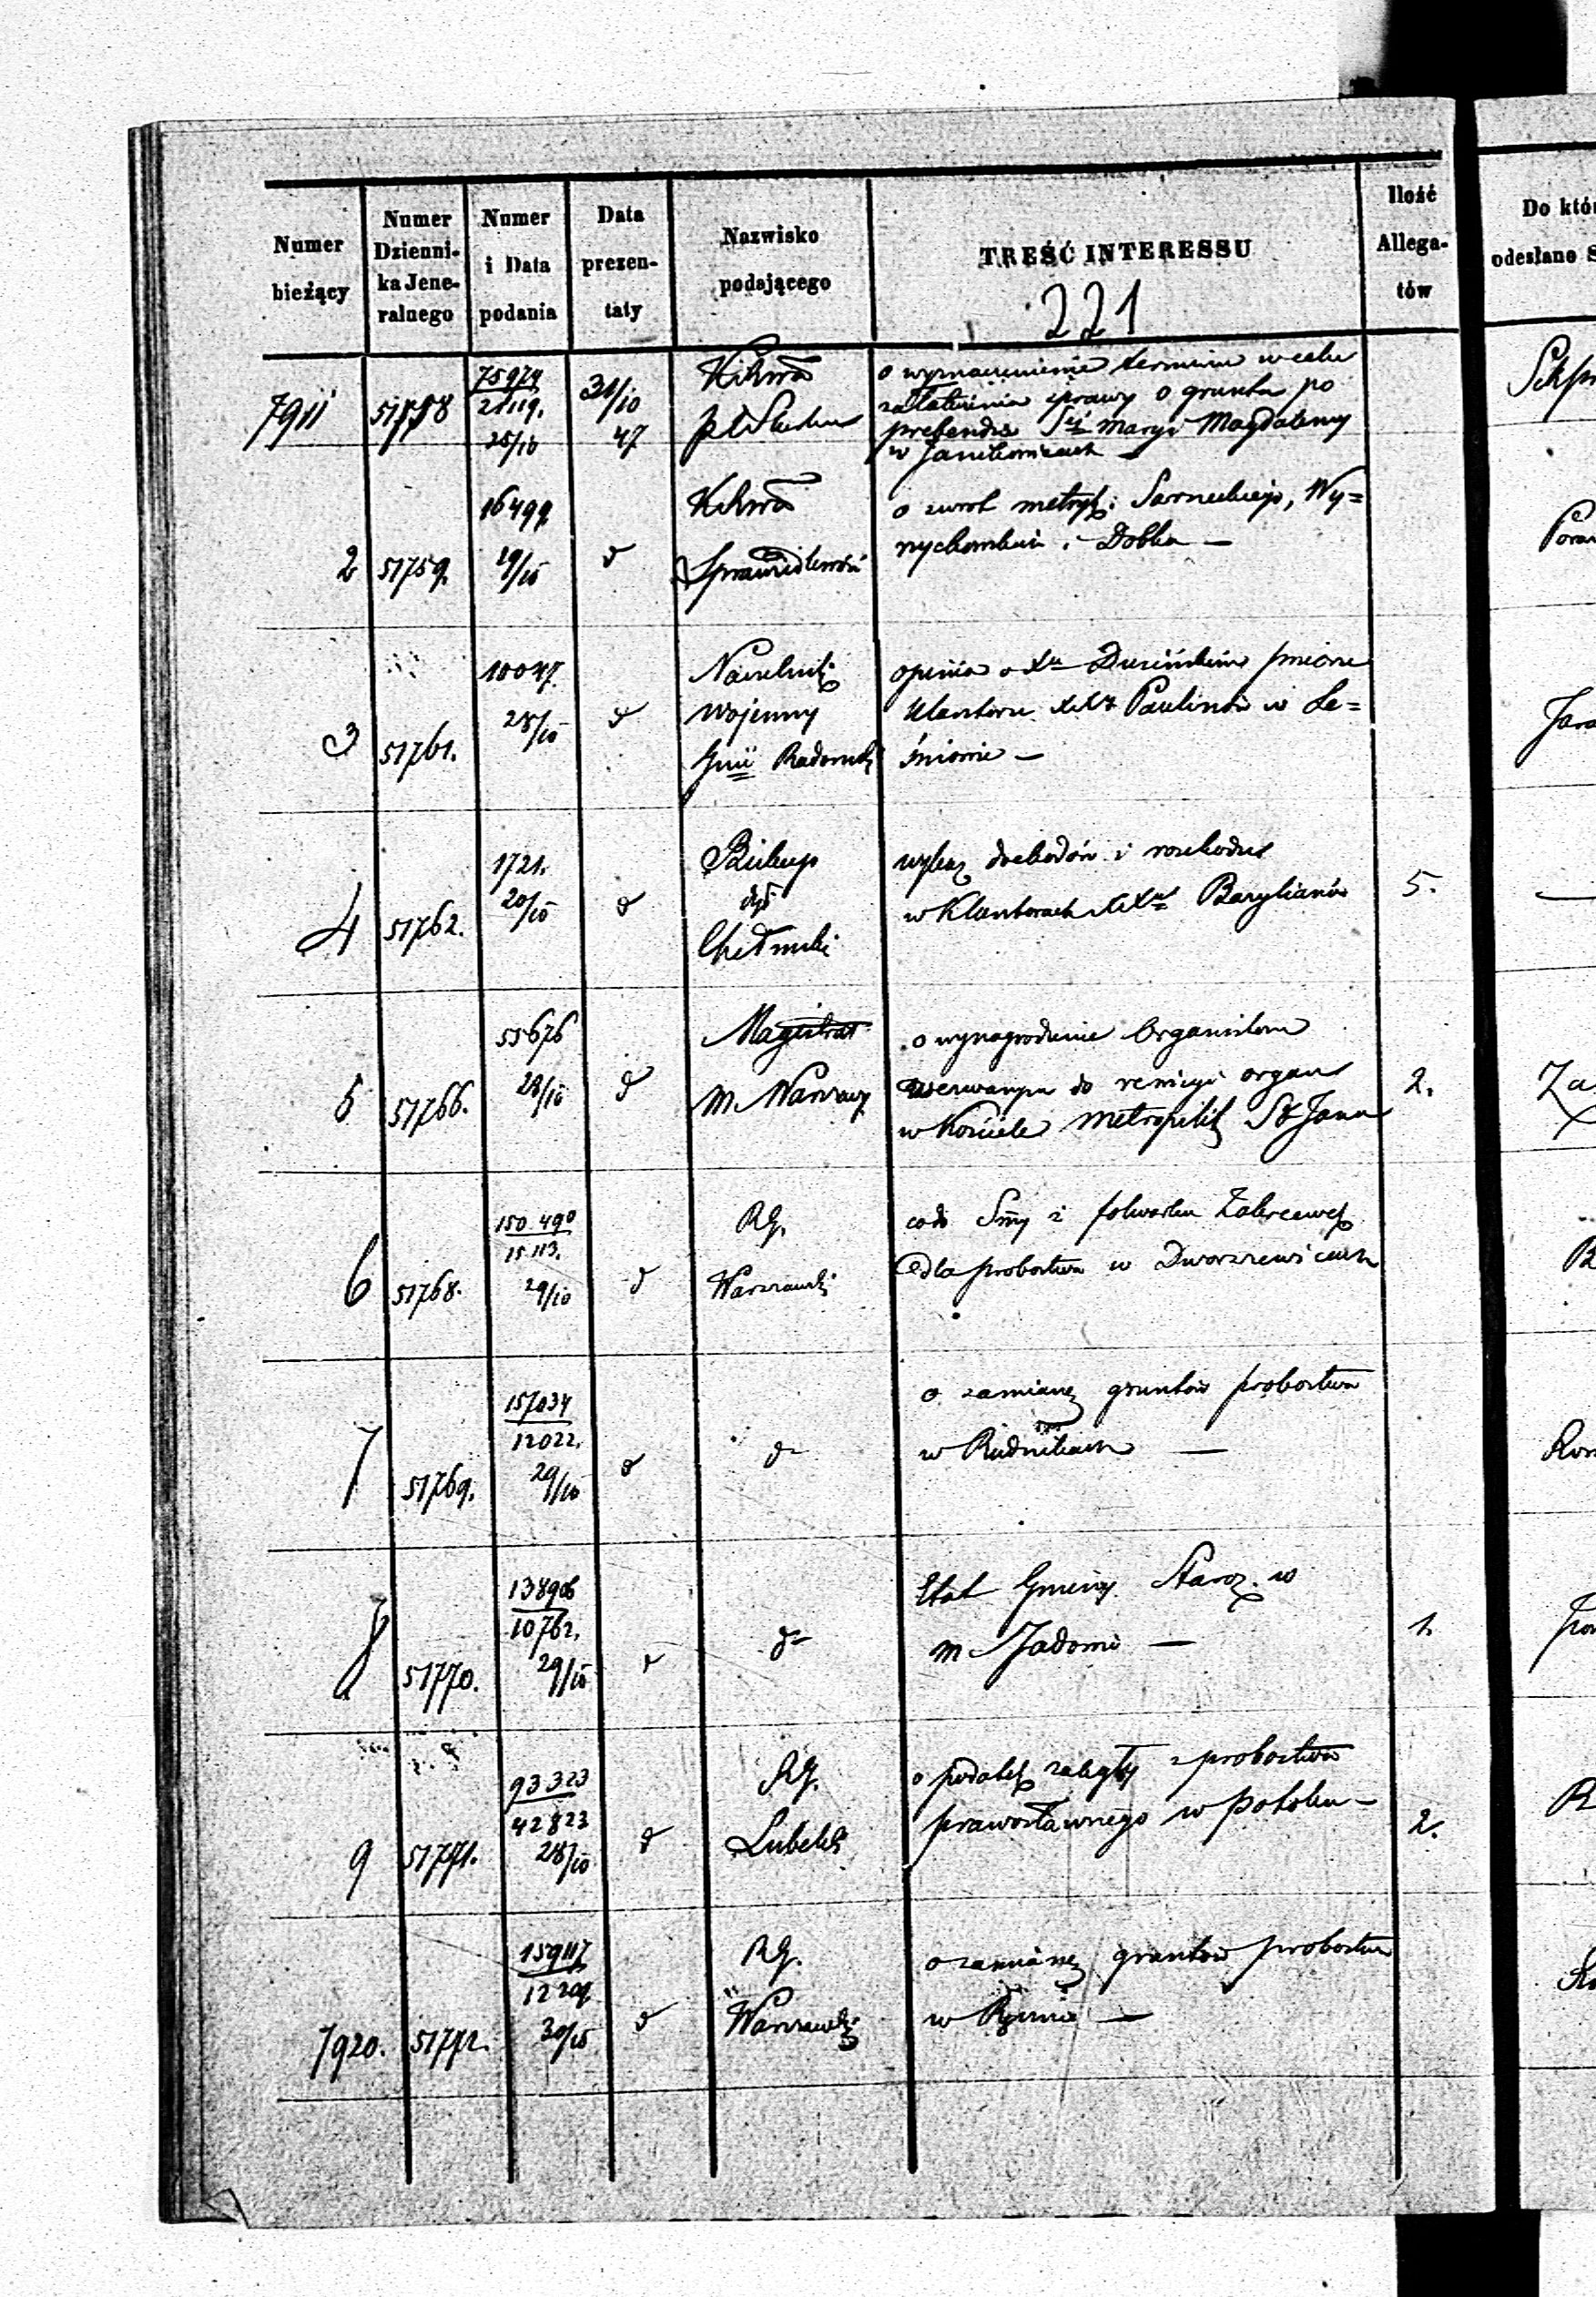 Numer bieżący
Numer Dzienni- ka Jene- ralnego
Numer i Data podania
Data prezen- taty
Nazwisko podającego
TREŚĆ INTERESSU
Ilość Allega- tów
Do któr
odesłano S
221
7911
51758
75974
21119.
25/10
31/10
47
o wyznaczenie terminu w celu
załatwienia sprawy o grunta po
prebendzie Śtéj Maryi Magdaleny
w Janikowicach —
2
51759.
16499
29/10
d
Sprawiedliwości
o zwrot metryk: Sarneckiego, Wy=
i Dobka —
3
51761.
10047.
28/10
d
Naczelnik
Wojenny
Gnii Radomsk
opinia o Xu
Klasztoru XX Paulinów w Le=
śniowie —
4
51762.
1721.
20/10
d
Biskup
Chełmski
wykaz dochodów i rozchodów
w Klasztorach XX Bazylianów
5.
5
51766.
55676
28/10
d
Magistrat
m. Warszawy
o wynagrodzenie Organistom
wezwanym do rewizyi organu
w Kościele Metropolit Sgo Jana
2.
Za
6
51768.
150.490
15.113.
29/10
d
RG.
Warszawski
co do Sumy z folwarku
dla probostwa w Dworszewicach
7
51769.
157034
12022.
29/10
d
d
o zamianę gruntów probostwa
w Rudnikach —
8
51770.
138906
10762.
29/10
d
d
Etat Gminy Staroz. w
m Jadowie —
1.
9
51771.
93323
42823
28/10
d
RG.
Lubelski
o podatek zaległy z probostwa
prawosławnego w Potoku —
2.
7920.
51772.
159117
12209
30/10
d
RG.
Warszawski
o zamianę gruntów probostwa
w —